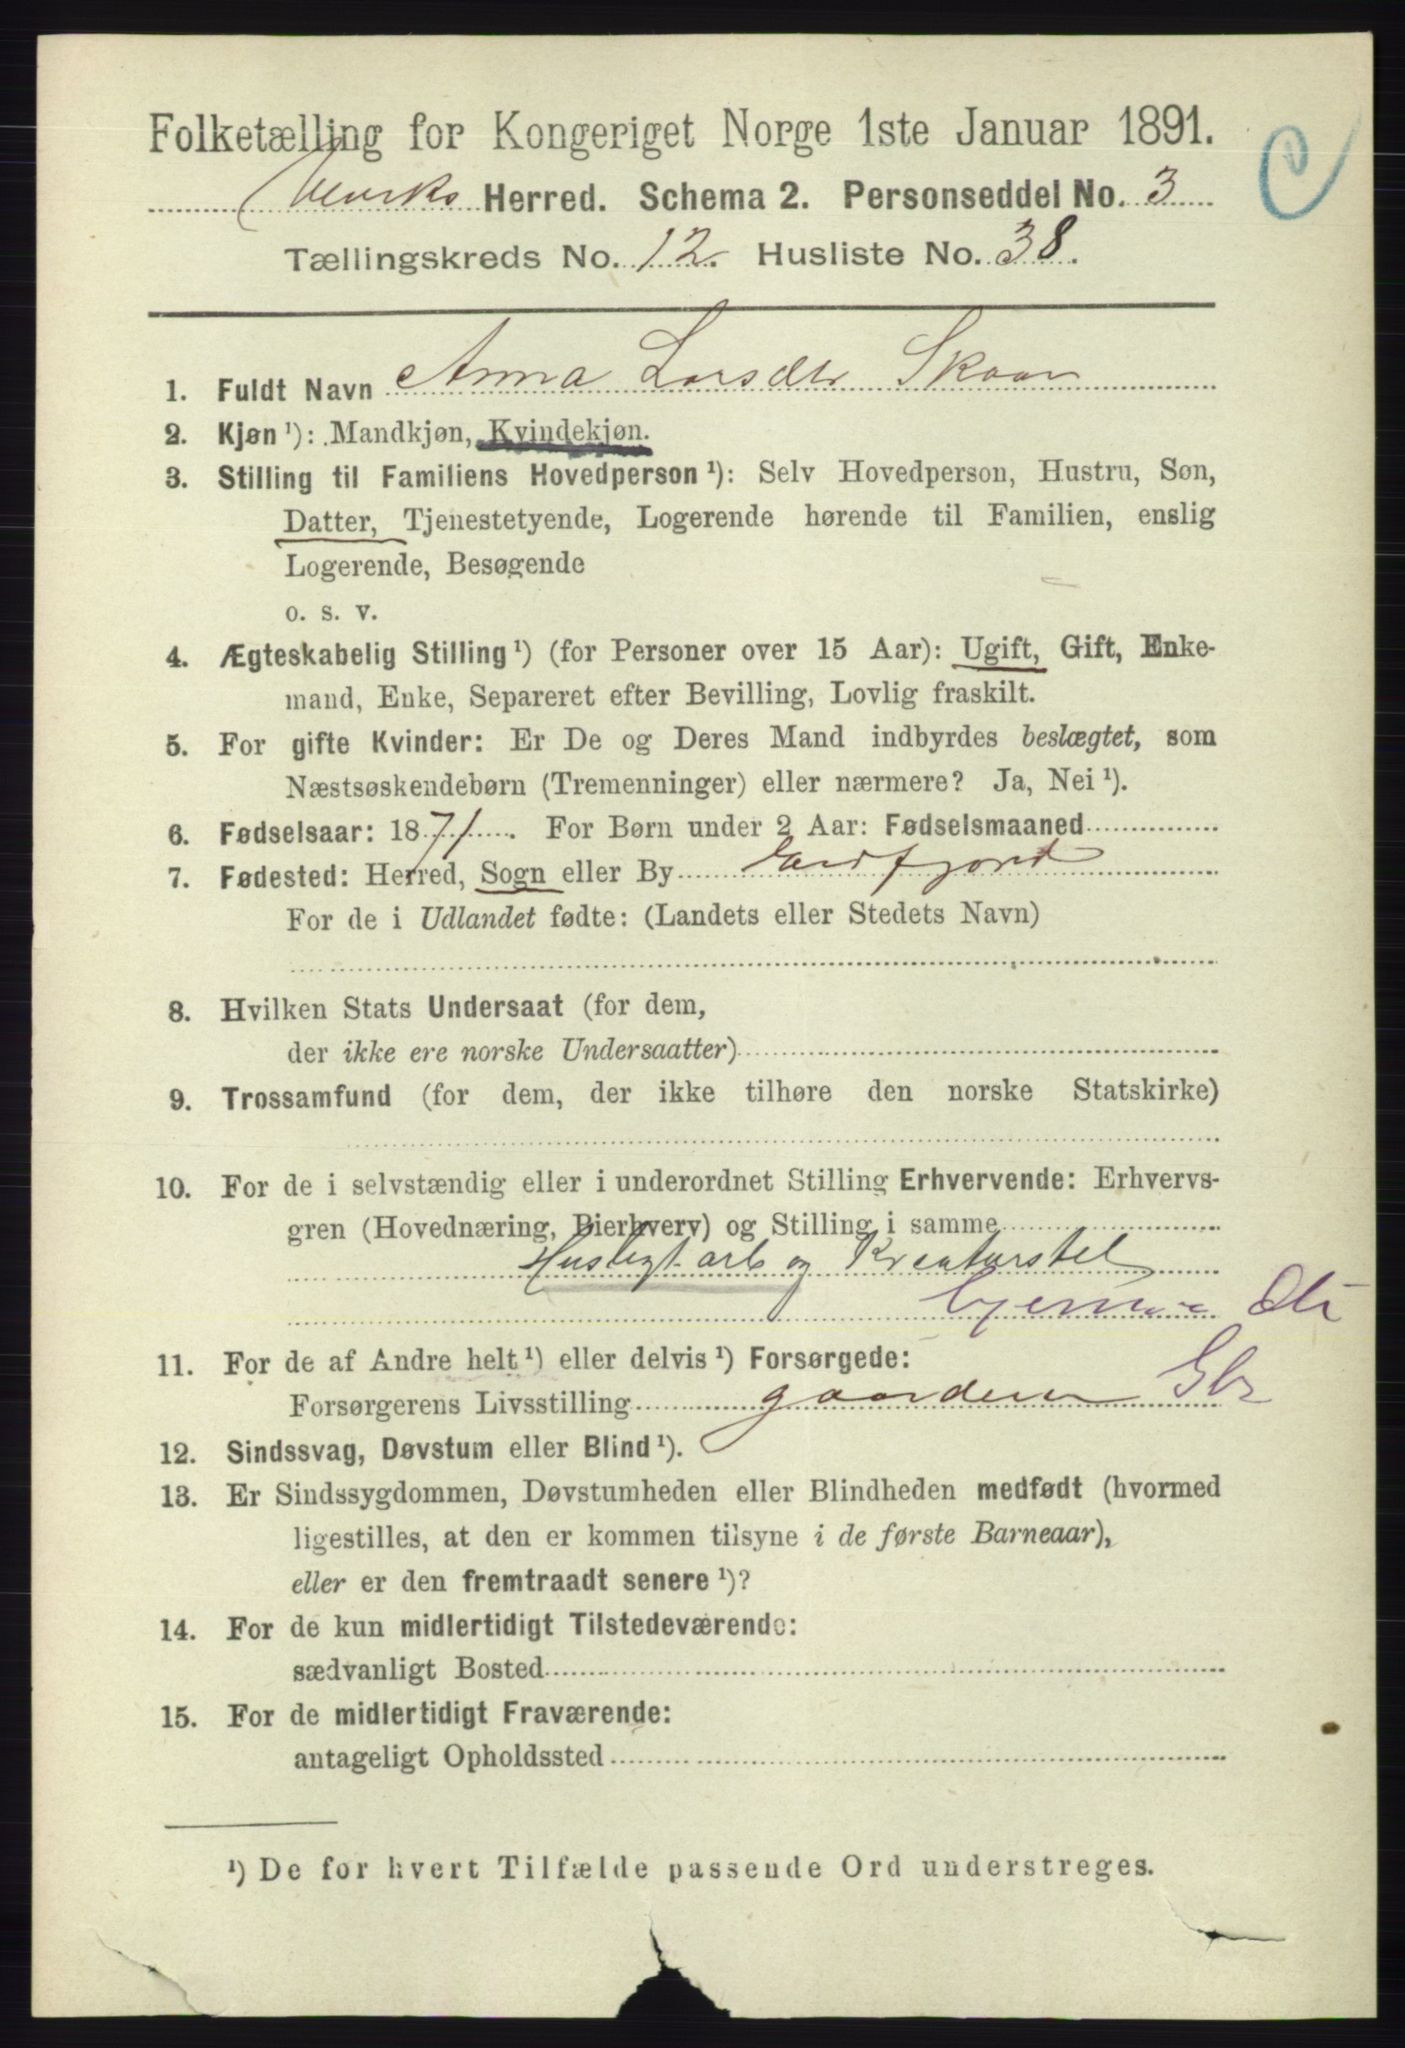 Folketælling for Kongeriget Norge 1ste Januar 1891.
Herred. Schema 2. Personseddel No. 3
Tællingskreds No. 12. Husliste No. 38.
1. Fuldt Navn Anna Larsdtr Skaar
2. Kjøn ¹): Mandkjøn, Kvindekjøn.
3. Stilling til Familiens Hovedperson ¹): Selv Hovedperson, Hustru, Søn,
Datter, Tjenestetyende, Logerende hørende til Familien, enslig
Logerende, Besøgende
o. s. v.
4. Ægteskabelig Stilling ¹) (for Personer over 15 Aar): Ugift, Gift, Enke-
mand, Enke, Separeret efter Bevilling, Lovlig fraskilt.
5. For gifte Kvinder: Er De og Deres Mand indbyrdes beslægtet, som
Næstsøskendebørn (Tremenninger) eller nærmere? Ja, Nei ¹).
6. Fødselsaar: 1871. For Børn under 2 Aar: Fødselsmaaned
7. Fødested: Herred, Sogn eller By Eidfjord
For de i Udlandet fødte: (Landets eller Stedets Navn)
8. Hvilken Stats Undersaat (for dem,
der ikke ere norske Undersaatter)
9. Trossamfund (for dem, der ikke tilhøre den norske Statskirke)
10. For de i selvstændig eller i underordnet Stilling Erhvervende: Erhvervs-
gren (Hovednæring, Bierhverv) og Stilling i samme
Husligt arb og Kreaturstel
hjemme Dtr
11. For de af Andre helt ¹) eller delvis ¹) Forsørgede:
Gbr
Forsørgerens Livsstilling
12. Sindssvag, Døvstum eller Blind ¹).
13. Er Sindssygdommen, Døvstumheden eller Blindheden medfødt (hvormed
ligestilles, at den er kommen tilsyne i de første Barneaar),
eller er den fremtraadt senere ¹)?
14. For de kun midlertidigt Tilstedeværende:
sædvanligt Bosted
15. For de midlertidigt Fraværende:
antageligt Opholdssted
¹) De for hvert Tilfælde passende Ord understreges.